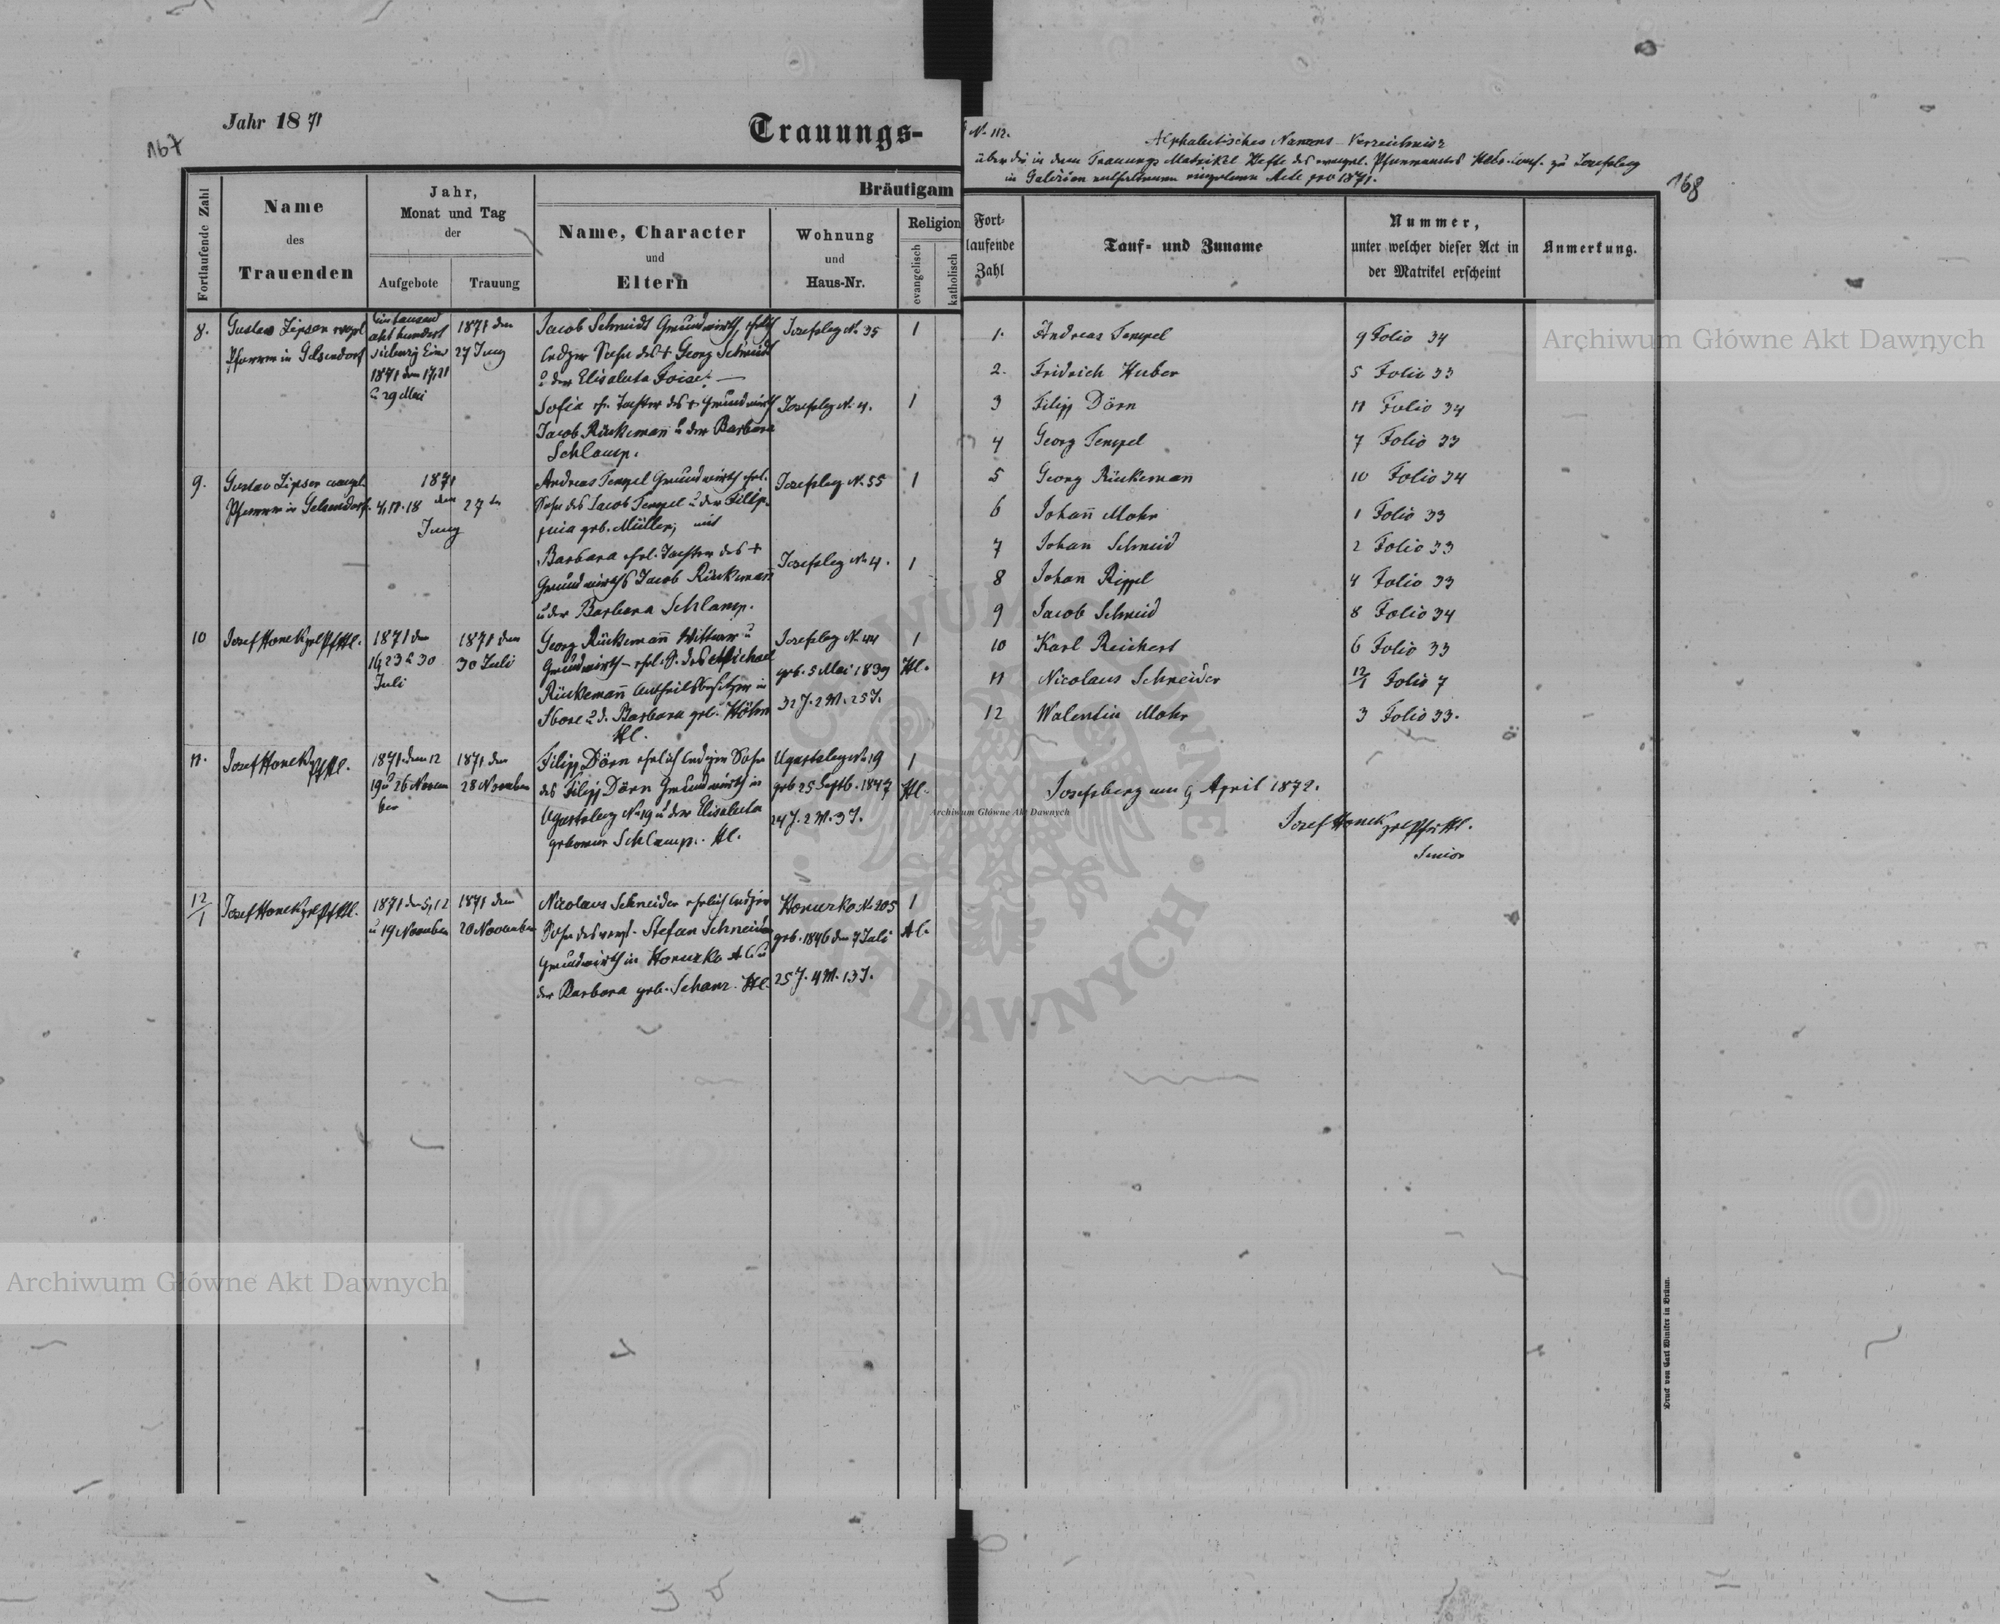 Jahr 1871
Trauungs-
167
Fortlaufende Zahl
Name
des
Trauenden
Jahr,
Monat und Tag
der
Aufgebote
Trauung
Bräutigam
Name, Character
und
Eltern
Wohnung
und
Haus-Nr.
Religion
evangelisch
katholisch
8.
Gustav Zipser evgl.
Pfarrer in Gelsendorf
Ein tausend
acht hundert
siebenzig Eins
1871 den 17, 21
u 29 Mai
1871 den
27 Juny
Jacob Schmidt Grundwirth, ehlich
lediger Sohn des + Georg Schmidt
u der Elisabeta
Josefsberg No. 35
1
Sofia eh. Tochter des + Grundwirth
Jacob Rückemañ u der Barbara
Schlamp.
Josefsbg No. 4.
1
9.
Gustav Zipser evangel.
Pfarrer in Gelsendorf.
1871
4, 11. 18 den
Juny
27 ten
Andreas Tempel Grundwirth ehel.
Sohn des Jacob Tempel u der Filip-
pina geb. Müller, mit
Josefsbeg No. 55
1
Barbara ehel. Tochter des +
Grundwirths Jacob Rückemañ
u der Barbara Schlamp.
Josefsbeg No. 4.
1
10
Josef Honek
1871 den
16, 23 u 30
Juli
1871 den
30 Juli
Georg Rückemañ Wittwer u
Grundwirth – ehl. S. des Michael
Rückemañ Antheilsbesitzer in
u d. Barbara geb. Höhn
HC.
Josefsbeg No. 44
geb. 5 Mai 1839
32 J. 2 M. 25 T.
1
HC.
11.
Josef Honek
1871 den 12
19 u 26 Novem
ber
1871 den
28 November
Filipp Dörn ehelich lediger Sohn
des Filipp Dörn Grundwirth in
Ugartsberg No 19 u der Elisabeta
geborner Schlamp. HC.
Ugartsbeg No 19
geb 25 Septb. 1847
24 J. 2 M. 3 T.
1
HC.
12/1
Josef Honek
1871 den 5, 12
u 19 November
1871 den
20 November
Nicolaus Schneider ehelich lediger
Sohn des verst. Stefan Schneider
Grundwirth in Horucko A C u
der Barbara geb. Schanz. HC
Horucko No. 205
geb. 1846 den 7 Juli
25 J. 4 M. 13 T.
1
AC.
No. 112.
Alphabetisches Namens-Verzeichniss
über die in dem Trauungs Matrikel Hefte des evangel. Pfarramtes Helv. Conf. zu Josefsberg
in Galizien enthaltenen Acte pro 1871.
168
Fort-
laufende
Zahl
Tauf- und Zuname
Nummer,
unter welcher dieser Act in
der Matrikel erscheint
Anmerkung.
1. Andreas Tempel 9 Folio 34
2. Fridrich Huber 5 Folio 33
3 Filipp Dörn 11 Folio 34
4 Georg Tempel 7 Folio 33
5 Georg Rückemañ 10 Folio 34
6 Johañ Mohr 1 Folio 33
7 Johan Schmid 2 Folio 33
8 Johan Rippel 4 Folio 33
9 Jacob Schmid 8 Folio 34
10 Karl Reichert 6 Folio 33
11 Nicolaus Schneider 12/1 Folio 7
12 Walentin Mohr 3 Folio 33.
Josefsberg am 9 April 1872.
Josef Honek
Senior
Druck von Carl Winiker in Brünn.
Archiwum Główne Akt Dawnych
Archiwum Główne Akt Dawnych
Archiwum Główne Akt Dawnych